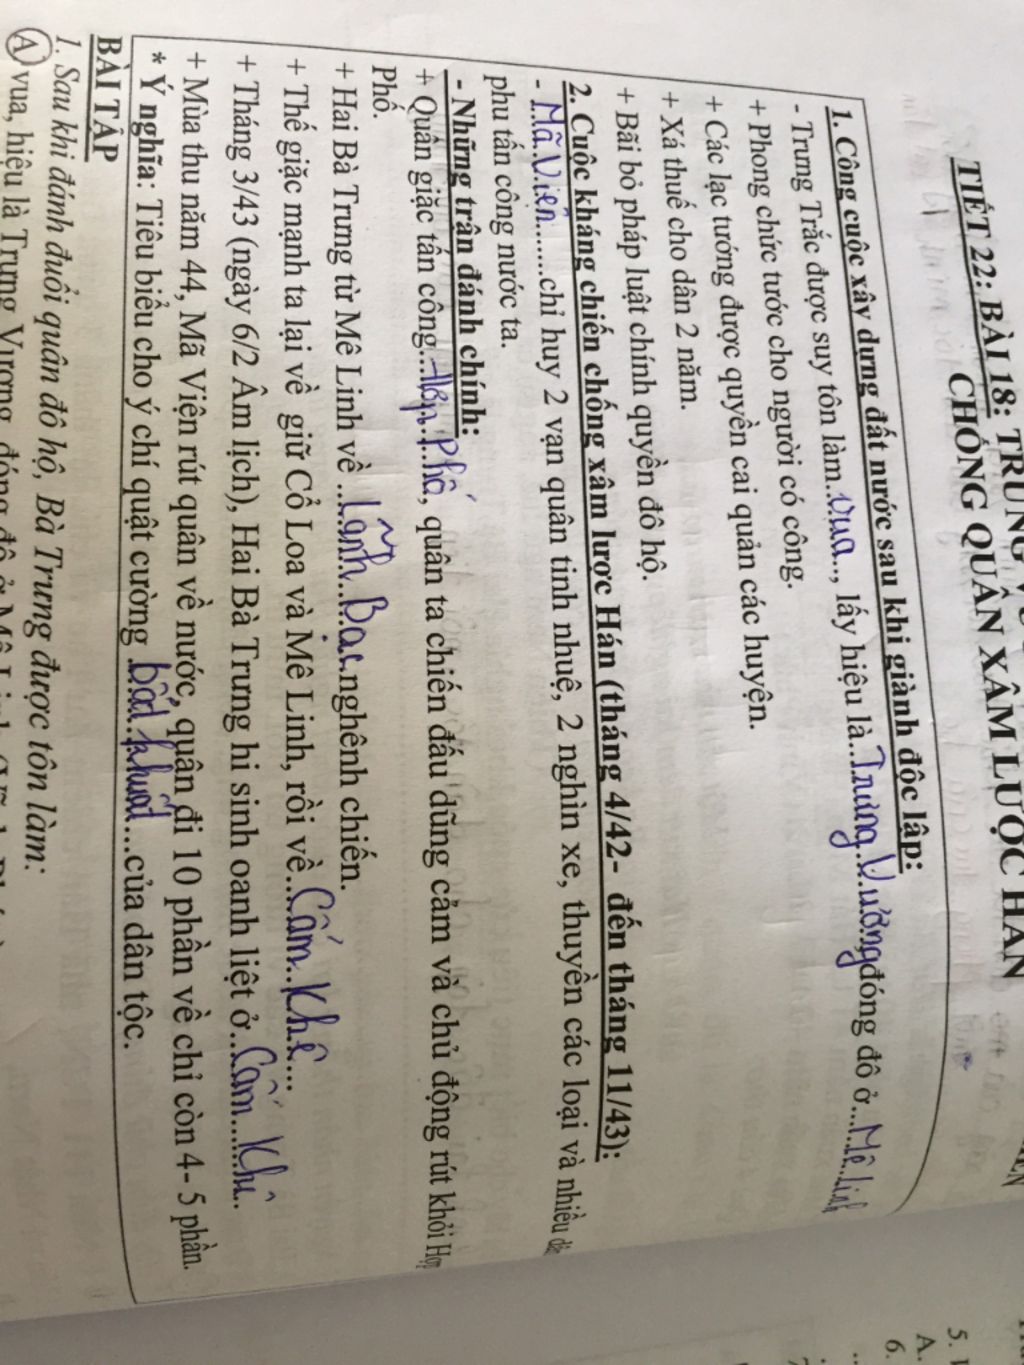 TIẾT 22: BÀI 18: TRƯNG
CHỐNG QUÂN XÂM LƯỢC HÁN
1. Công cuộc xây dựng đất nước sau khi giành độc lập:
- Trưng Trắc được suy tôn làm...vua..., lấy hiệu là...Trưng Vương đóng đô ở...Mê Linh
+ Phong chức tước cho người có công.
+ Các lạc tướng được quyền cai quản các huyện.
+ Xá thuế cho dân 2 năm.
+ Bãi bỏ pháp luật chính quyền đô hộ.
2. Cuộc kháng chiến chống xâm lược Hán (tháng 4/42- đến tháng 11/43):
- Mã Viện.......chỉ huy 2 vạn quân tinh nhuệ, 2 nghìn xe, thuyền các loại và nhiều dân
phu tấn công nước ta.
- Những trận đánh chính:
+ Quân giặc tấn công...Hợp Phố, quân ta chiến đấu dũng cảm và chủ động rút khỏi Hợp
Phố.
+ Hai Bà Trưng từ Mê Linh về ...Lãnh Bạc.nghênh chiến.
+ Thế giặc mạnh ta lại về giữ Cổ Loa và Mê Linh, rồi về...Cấm Khê...
+ Tháng 3/43 (ngày 6/2 Âm lịch), Hai Bà Trưng hi sinh oanh liệt ở...Cấm Khê.
+ Mùa thu năm 44, Mã Viện rút quân về nước, quân đi 10 phần về chỉ còn 4- 5 phần.
* Ý nghĩa: Tiêu biểu cho ý chí quật cường bất khuất...của dân tộc.
BÀI TẬP
1. Sau khi đánh đuổi quân đô hộ, Bà Trưng được tôn làm:
A vua, hiệu là Trưng Vương, đóng đô ở Mê Linh
5.
A.
6.